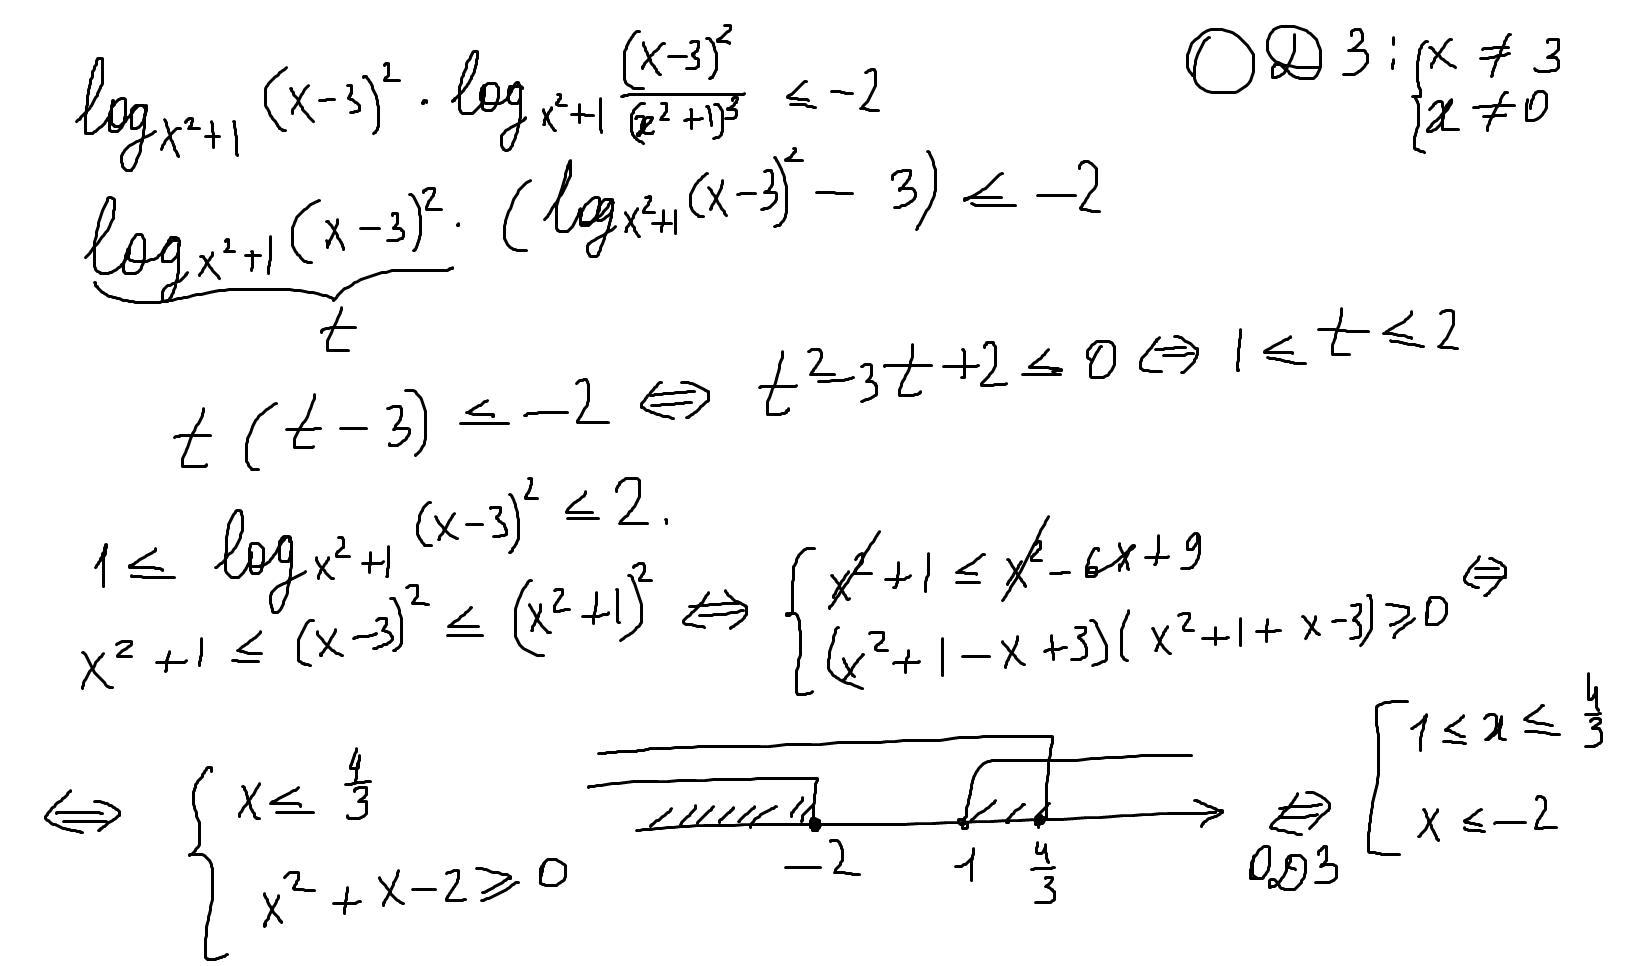 log_{x²+1} (x-3)² · log_{x²+1} (x-3)²/(x²+1)³ ≤ -2 ОДЗ: { x ≠ 3
{ x ≠ 0
log_{x²+1} (x-3)² · (log_{x²+1} (x-3)² - 3) ≤ -2
t
t(t-3) ≤ -2 ⇔ t²-3t+2 ≤ 0 ⇔ 1 ≤ t ≤ 2
1 ≤ log_{x²+1} (x-3)² ≤ 2.
x²+1 ≤ (x-3)² ≤ (x²+1)² ⇔ { x²+1 ≤ x²-6x+9
{ (x²+1-x+3)(x²+1+x-3) ≥ 0 ⇔
⇔ { x ≤ 4/3
{ x²+x-2 ≥ 0
-2 1 4/3
⇔ ОДЗ [ 1 ≤ x ≤ 4/3
[ x ≤ -2